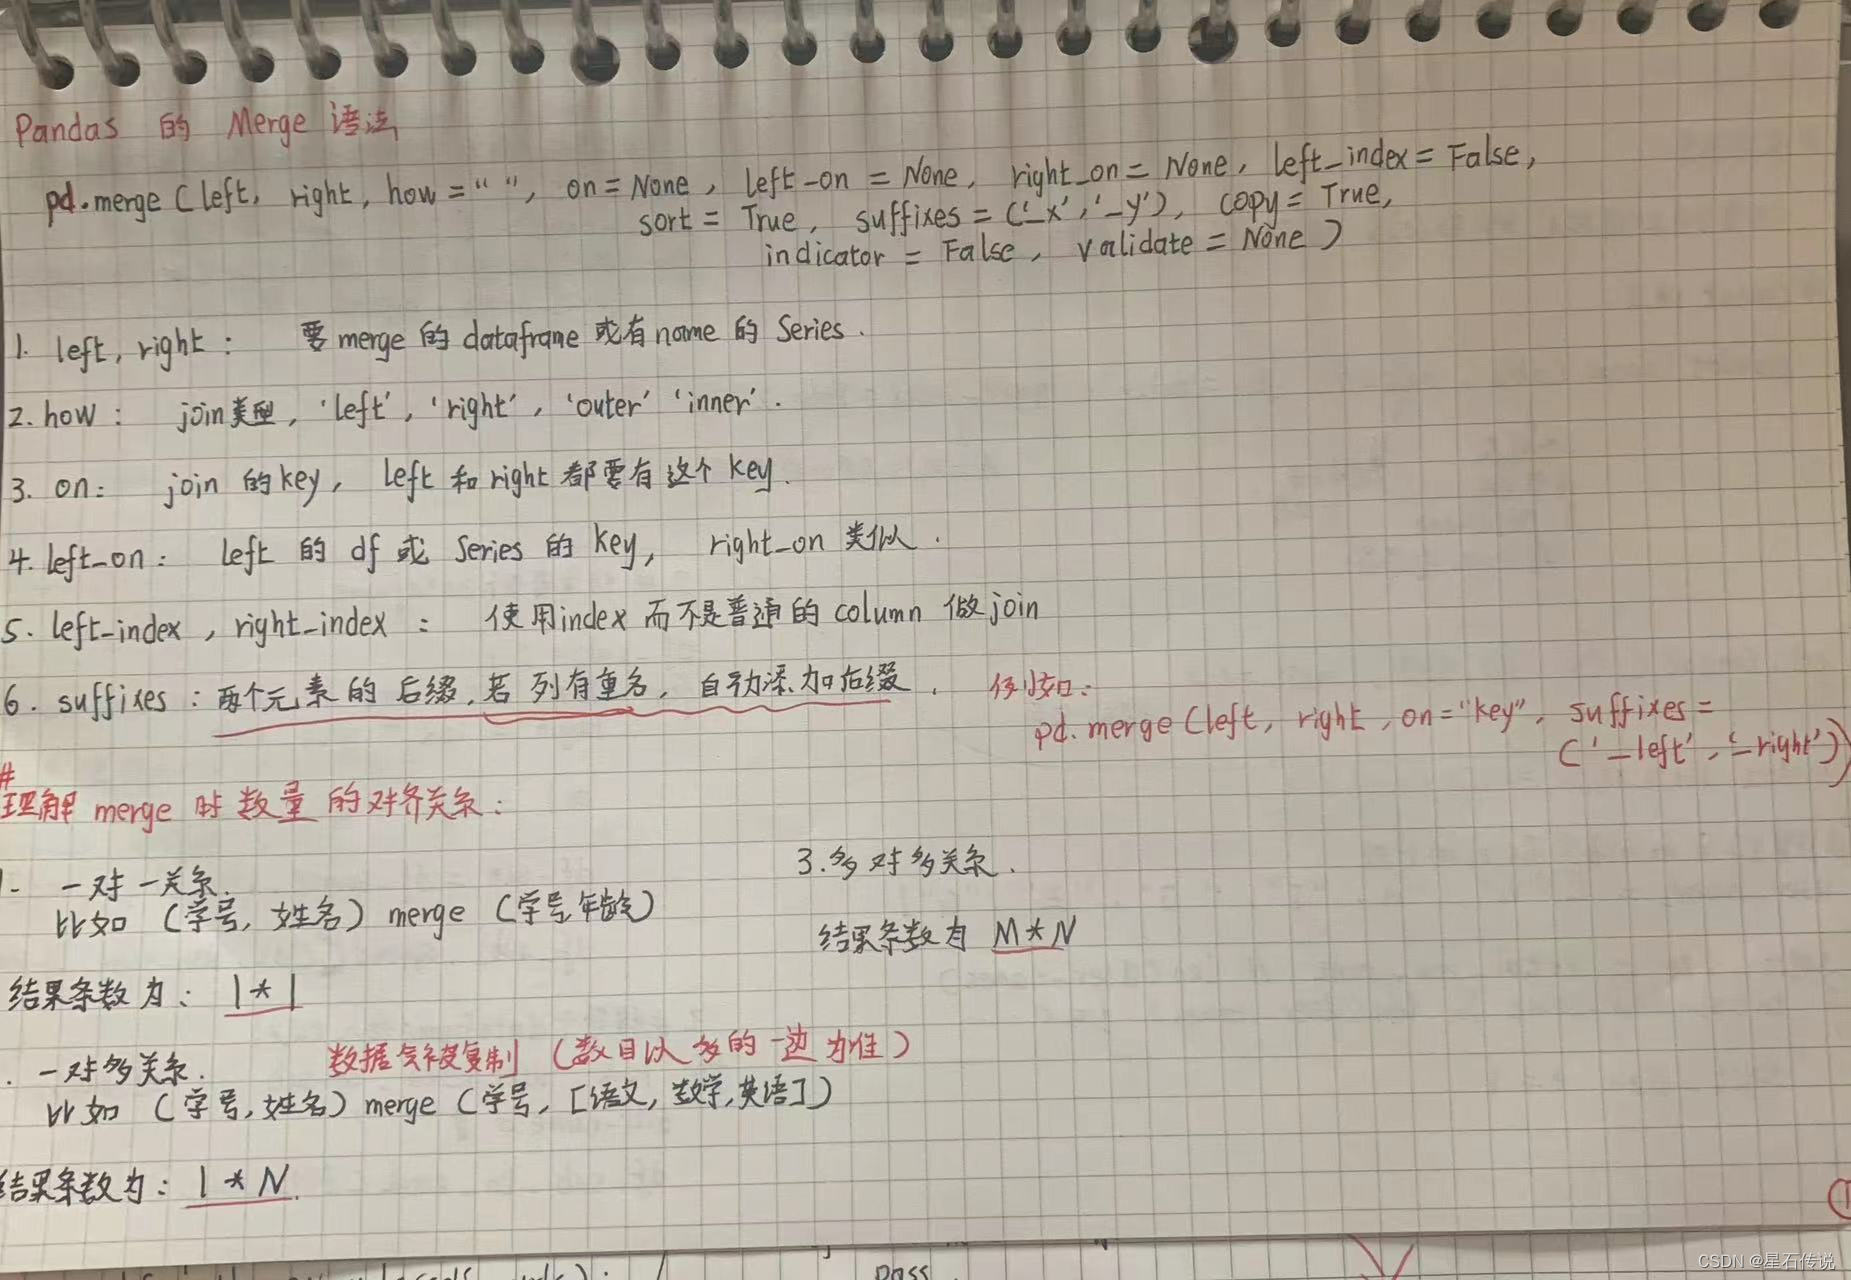 Pandas 的 Merge 语法
pd.merge (left, right, how = “ ”, on = None, left_on = None, right_on = None, left_index = False,
sort = True, suffixes = ('_x', '_y'), copy = True,
indicator = False, validate = None )
1. left, right : 要 merge 的 dataframe 或有 name 的 Series.
2. how : join 类型, 'left', 'right', 'outer' 'inner'.
3. on : join 的 key, left 和 right 都要有这个 key.
4. left_on : left 的 df 或 Series 的 key, right_on 类似.
5. left_index , right_index : 使用index 而不是普通的 column 做join
6. suffixes : 两个元素的后缀,若列有重名,自动添加后缀. 例如:
pd.merge (left, right, on = "key", suffixes =
('_left', '_right'))
#
理解 merge 时数量的对齐关系:
1. 一对一关系.
比如 (学号, 姓名) merge (学号,年龄)
结果条数为: 1*1
. 一对多关系. 数据会被复制 (数目以多的一边为准)
比如 (学号,姓名) merge (学号, [语文, 数学,英语])
结果条数为: 1*N.
3. 多对多关系.
结果条数为 M*N
①
pass
CSDN @星石传说